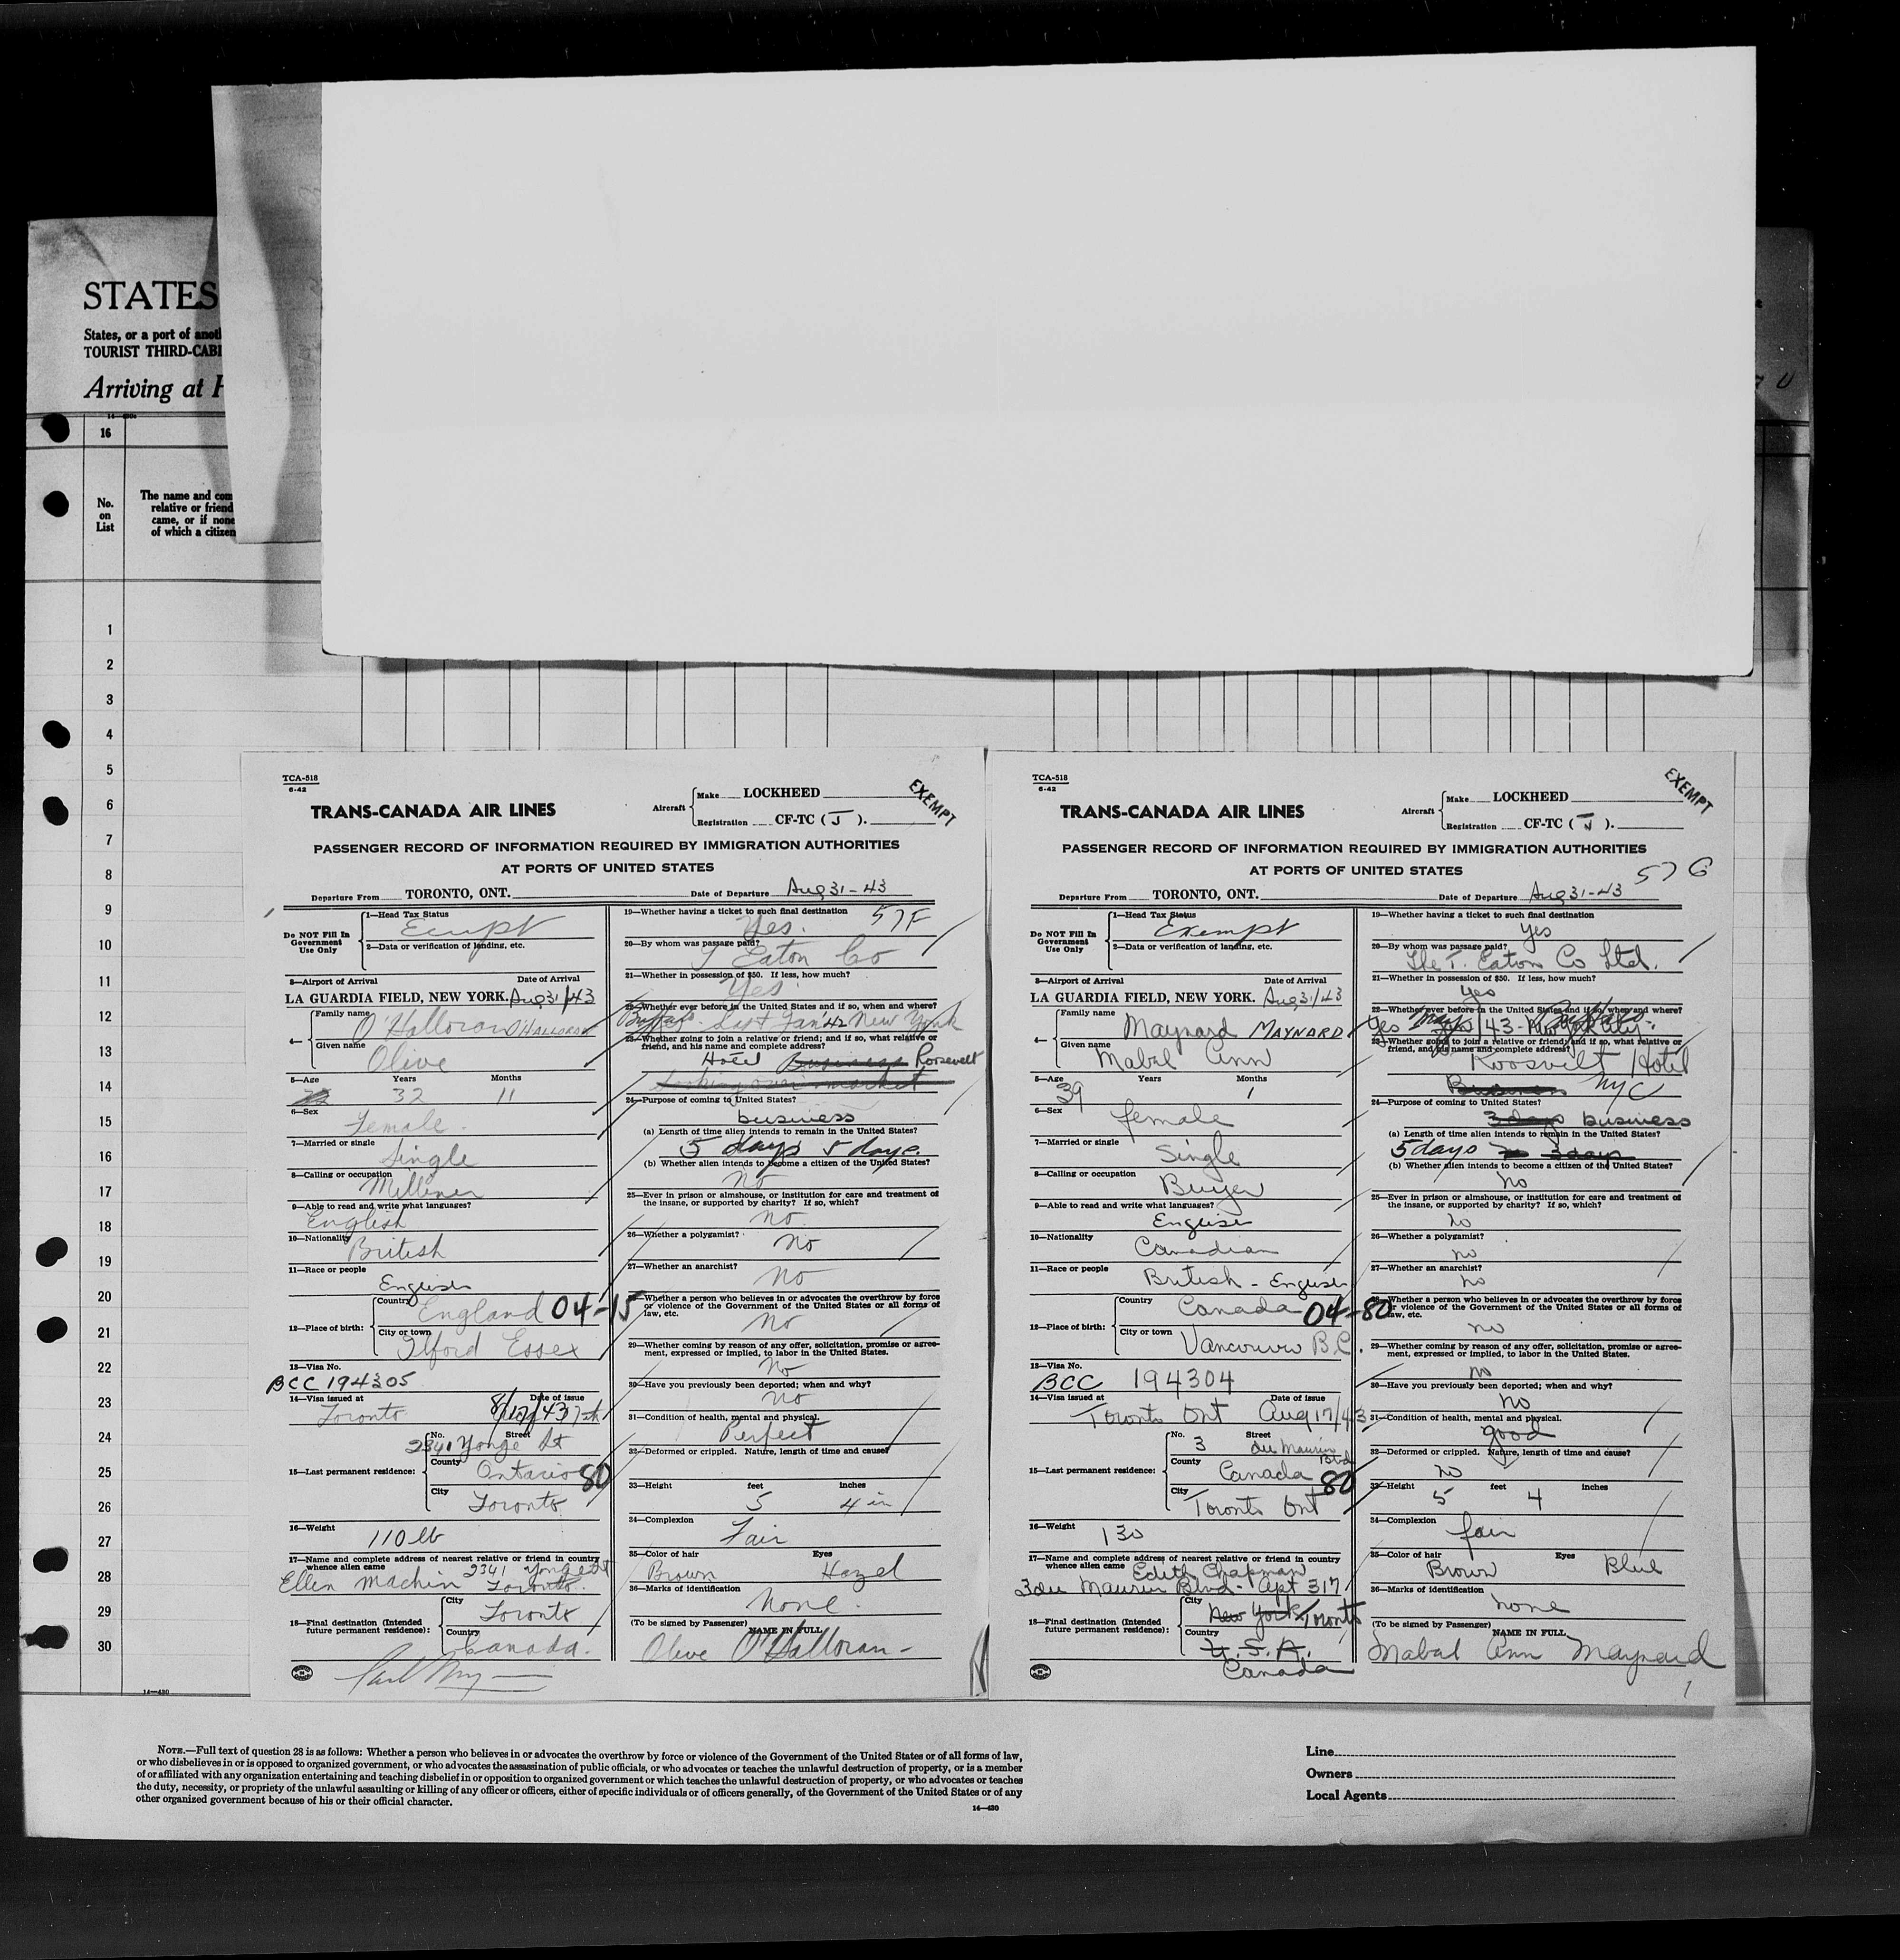 STATES
States, or a port of
TOURIST THIRD-CABI
Arriving at
16
No.
on
List
The name and com
relative or friend
came, or if none
of which a citizen
1
2
3
4
5
6
7
8
9
10
11
12
13
14
15
16
17
18
19
20
21
22
23
24
25
26
27
28
29
30
14—430
TCA-518
6-42
TRANS-CANADA AIR LINES
Aircraft
Make LOCKHEED
Registration CF-TC ( J ).
EXEMPT
PASSENGER RECORD OF INFORMATION REQUIRED BY IMMIGRATION AUTHORITIES
AT PORTS OF UNITED STATES
Departure From TORONTO, ONT. Date of Departure Aug 31-43
Do NOT Fill In
Government
Use Only
1—Head Tax Status
2—Data or verification of landing, etc.
3—Airport of Arrival Date of Arrival
LA GUARDIA FIELD, NEW YORK. Aug 31/43
4—
Family name
O'Halloran O'HALLORAN
Given name
Olive
5—Age Years Months
32 11
6—Sex
Female.
7—Married or single
Single
8—Calling or occupation
Milliner
9—Able to read and write what languages?
English
10—Nationality
British
11—Race or people
English
12—Place of birth:
Country
England 04-15
City or town
Ilford Essex
13—Visa No.
BCC 194305
14—Visa issued at Date of issue
Toronto 8/17/43
15—Last permanent residence:
No. Street
2341 Yonge St
County
Ontario 80
City
Toronto
16—Weight
110 lb
17—Name and complete address of nearest relative or friend in country
whence alien came 2341 Yonge St
Ellen Machin Toronto.
18—Final destination (Intended
future permanent residence):
City
Toronto
Country
Canada.
19—Whether having a ticket to such final destination 57F
Yes.
20—By whom was passage paid?
T Eaton Co
21—Whether in possession of $50. If less, how much?
Yes
22—Whether ever before in the United States and if so, when and where?
Buffalo. Last Jan '42 New York
23—Whether going to join a relative or friend; and if so, what relative or
friend, and his name and complete address?
Hotel Business Roosevelt
24—Purpose of coming to United States?
business
(a) Length of time alien intends to remain in the United States?
5 days 5 days.
(b) Whether alien intends to become a citizen of the United States?
No
25—Ever in prison or almshouse, or institution for care and treatment of
the insane, or supported by charity? If so, which?
No.
26—Whether a polygamist?
No
27—Whether an anarchist?
No
Whether a person who believes in or advocates the overthrow by force
or violence of the Government of the United States or all forms of
law, etc.
No
29—Whether coming by reason of any offer, solicitation, promise or agree-
ment, expressed or implied, to labor in the United States.
No
30—Have you previously been deported; when and why?
No
31—Condition of health, mental and physical.
Perfect
32—Deformed or crippled. Nature, length of time and cause?
33—Height feet inches
5 4 in
34—Complexion
Fair
35—Color of hair Eyes
Brown Hazel
36—Marks of identification
None.
(To be signed by Passenger) NAME IN FULL
Olive O'Halloran
TCA-518
6-42
TRANS-CANADA AIR LINES
Aircraft
Make LOCKHEED
Registration CF-TC ( J ).
EXEMPT
PASSENGER RECORD OF INFORMATION REQUIRED BY IMMIGRATION AUTHORITIES
AT PORTS OF UNITED STATES
57 G
Departure From TORONTO, ONT. Date of Departure Aug 31-43
Do NOT Fill In
Government
Use Only
1—Head Tax Status
Exempt
2—Data or verification of landing, etc.
3—Airport of Arrival Date of Arrival
LA GUARDIA FIELD, NEW YORK. Aug 31/43
4—
Family name
Maynard MAYNARD
Given name
Mabel Ann
5—Age Years Months
39 1
6—Sex
female
7—Married or single
Single
8—Calling or occupation
Buyer
9—Able to read and write what languages?
English
10—Nationality
Canadian
11—Race or people
British - English
12—Place of birth:
Country
Canada 04-80
City or town
Vancouver B.C.
13—Visa No.
BCC 194304
14—Visa issued at Date of issue
Toronto Ont Aug 17/43
15—Last permanent residence:
No. Street
3 du Maurier Blvd
County
Canada 80
City
Toronto Ont
16—Weight
130
17—Name and complete address of nearest relative or friend in country
whence alien came Edith Chapman
3 du Maurier Blvd - Apt 317
18—Final destination (Intended
future permanent residence):
City
New York Toronto
Country
U.S.A.
Canada
19—Whether having a ticket to such final destination
Yes
20—By whom was passage paid?
The T. Eaton Co Ltd.
21—Whether in possession of $50. If less, how much?
Yes
22—Whether ever before in the United States and if so, when and where?
Yes
23—Whether going to join a relative or friend; and if so, what relative or
friend, and his name and complete address?
Roosvelt Hotel
Business NYC
24—Purpose of coming to United States?
3 days business
(a) Length of time alien intends to remain in the United States?
5 days 3 days
(b) Whether alien intends to become a citizen of the United States?
No
25—Ever in prison or almshouse, or institution for care and treatment of
the insane, or supported by charity? If so, which?
No
26—Whether a polygamist?
No
27—Whether an anarchist?
No
Whether a person who believes in or advocates the overthrow by force
or violence of the Government of the United States or all forms of
law, etc.
No
29—Whether coming by reason of any offer, solicitation, promise or agree-
ment, expressed or implied, to labor in the United States.
No
30—Have you previously been deported; when and why?
No
31—Condition of health, mental and physical.
good
32—Deformed or crippled. Nature, length of time and cause?
No
33—Height feet inches
5 4
34—Complexion
fair
35—Color of hair Eyes
Brown Blue
36—Marks of identification
None
(To be signed by Passenger) NAME IN FULL
Mabel Ann Maynard
14—430
NOTE.—Full text of question 28 is as follows: Whether a person who believes in or advocates the overthrow by force or violence of the Government of the United States or of all forms of law,
or who disbelieves in or is opposed to organized government, or who advocates the assassination of public officials, or who advocates or teaches the unlawful destruction of property, or is a member
of or affiliated with any organization entertaining and teaching disbelief in or opposition to organized government or which teaches the unlawful destruction of property, or who advocates or teaches
the duty, necessity, or propriety of the unlawful assaulting or killing of any officer or officers, either of specific individuals or of officers generally, of the Government of the United States or of any
other organized government because of his or their official character.
14—430
Line
Owners
Local Agents